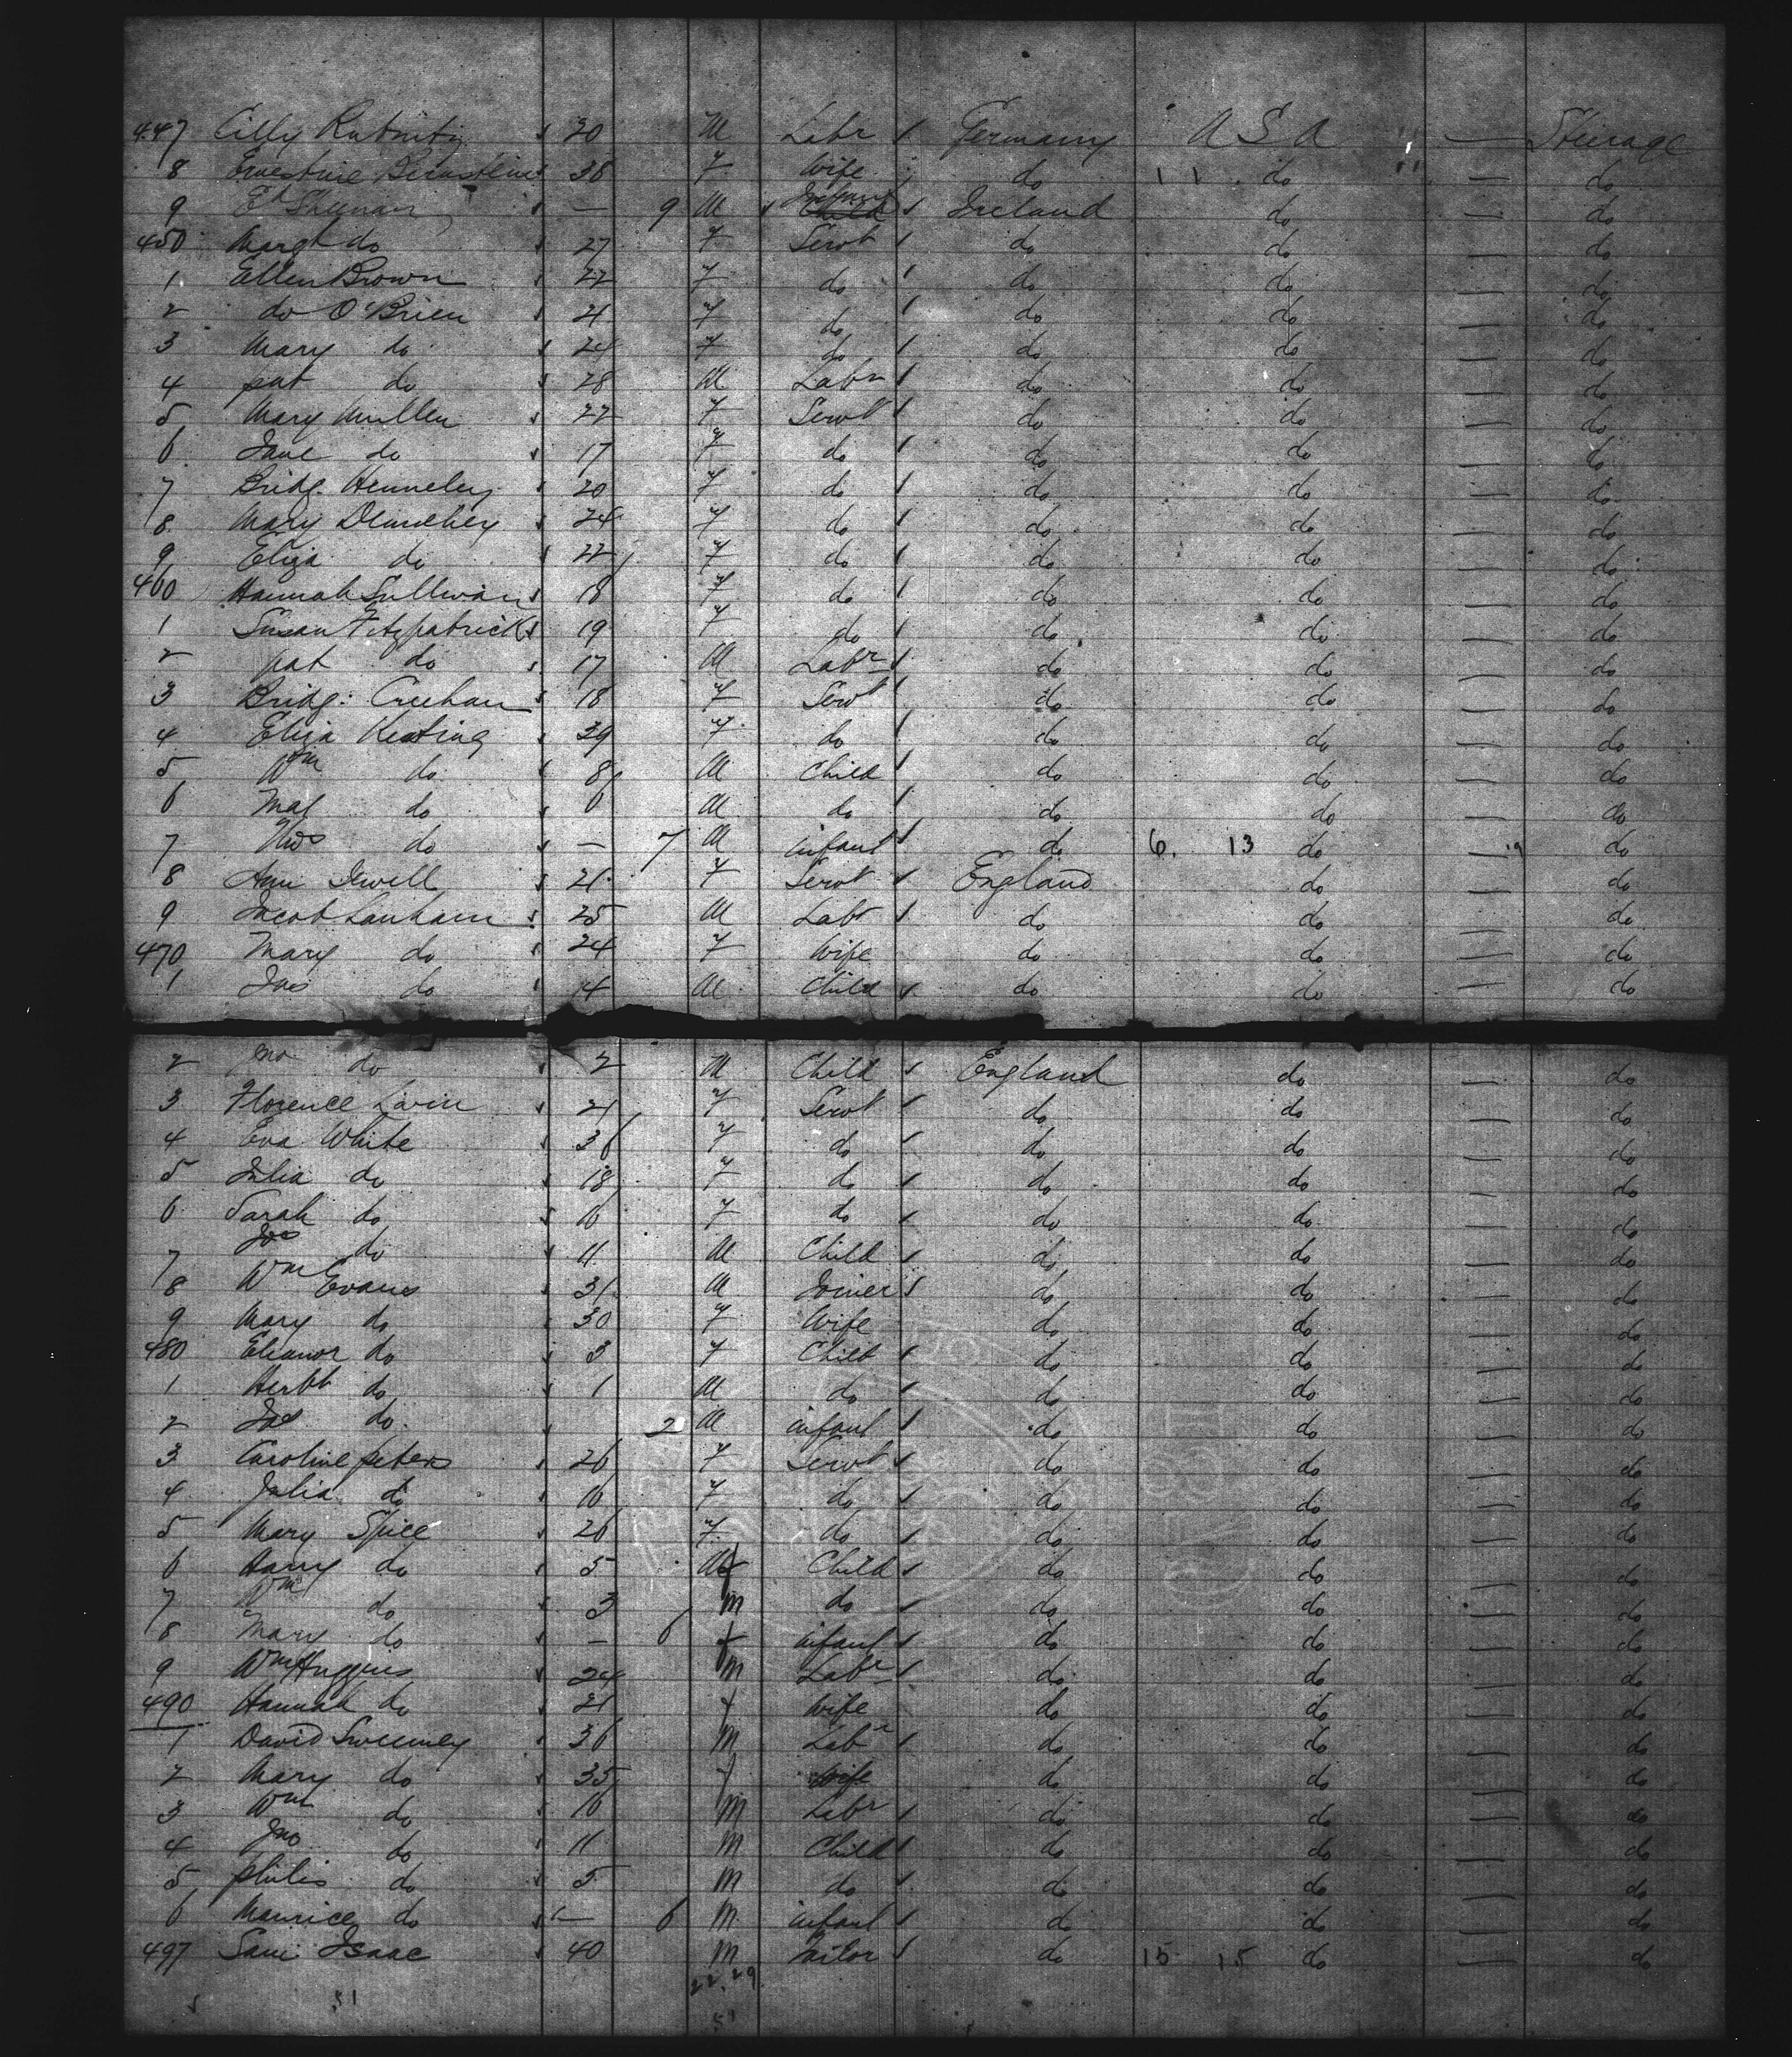 447 Cilly 30 M Labr Germany U S A — Steerage
8 Ernestine Bernstein 38 F Wife do 1 1 do — do
9 Ed Sheenan — 9 M Infant Ireland do — do
450 Margt do 27 F Servt do do — do
1 Ellen Brown 22 F do do do — do
2 do O'Brien 21 F do do do — do
3 Mary do 24 F do do do — do
4 pat do 28 M Labr do do — do
5 Mary Mullen 22 F Servt do do — do
6 Jane do 17 F do do do — do
7 Bridg. Henneley 20 F do do do — do
8 Mary 24 F do do do — do
9 Eliza do 22 F do do do — do
460 Hannah Sullivan 18 F do do do — do
1 Susan Fitzpatrick 19 F do do do — do
2 pat do 17 M Labr do do — do
3 Bridg: Creehan 18 F Servt do do — do
4 Eliza Keating 39 F do do do — do
5 Wm do 8 M Child do do — do
6 do 6 M do do do — do
7 Thos do — 7 M infant do 6. 13 do — do
8 Ann Jewell 21 F Servt England do — do
9 Jacob Lanham 25 M Labr do do — do
470 Mary do 24 F Wife do do — do
1 Jas do 4 M Child do do — do
2 Jno do 2 M Child England do — do
3 Florence 21 F Servt do do — do
4 Eva White 36 F do do do — do
5 Julia do 18 F do do do — do
6 Sarah do 16 F do do do — do
7 Jos do 11 M Child do do — do
8 Wm Evans 31 M Joiner do do — do
9 Mary do 30 F Wife do do — do
480 Elianor do 3 F Child do do — do
1 Herbt do 1 M do do do — do
2 do 2 M infant do do — do
3 Caroline peters 26 F Servt do do — do
4 Julia do 16 F do do do — do
5 Mary Spice 26 F do do do — do
6 Harry do 5 M Child do do — do
7 Wm do 3 M do do do — do
8 Mary do — 6 f infant do do — do
9 Wm Huggins 24 M Labr do do — do
490 Hannah do 21 f Wife do do — do
1 David Sweeney 36 M Labr do do — do
2 Mary do 35 f Wife do do — do
3 Wm do 16 M Labr do do — do
4 Jno do 11 M Child do do — do
5 philis do 5 M do do do — do
6 Maurice do — 6 M infant do do — do
497 Sam Isaac 40 M Tailor do 15 15 do — do
22. 29
51 51